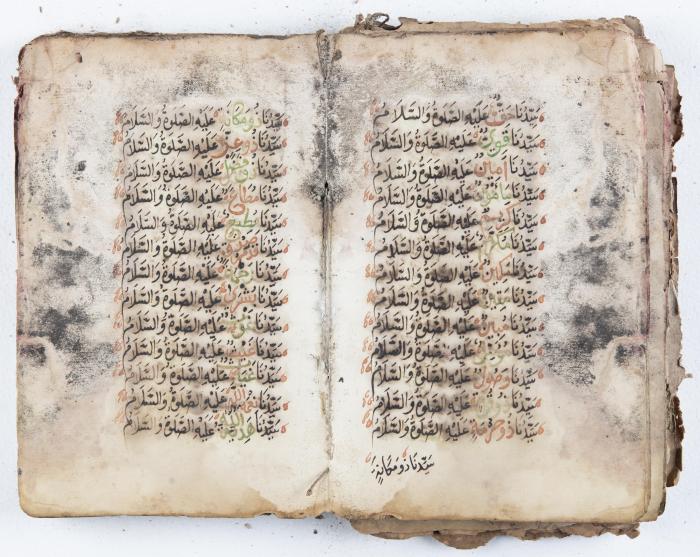 سَيِّدُنَا حَقٌّ عَلَيْهِ الصَّلٰوةُ وَالسَّلَامُ
سَيِّدُنَا قَوِىٌّ عَلَيْهِ الصَّلٰوةُ وَالسَّلَامُ
سَيِّدُنَا اَمِينٌ عَلَيْهِ الصَّلٰوةُ وَالسَّلَامُ
سَيِّدُنَا مَاْمُونٌ عَلَيْهِ الصَّلٰوةُ وَالسَّلَامُ
سَيِّدُنَا كَرِيمٌ عَلَيْهِ الصَّلٰوةُ وَالسَّلَامُ
سَيِّدُنَا مُكَرَّمٌ عَلَيْهِ الصَّلٰوةُ وَالسَّلَامُ
سَيِّدُنَا مَكِينٌ عَلَيْهِ الصَّلٰوةُ وَالسَّلَامُ
سَيِّدُنَا مَتِينٌ عَلَيْهِ الصَّلٰوةُ وَالسَّلَامُ
سَيِّدُنَا مُبِينٌ عَلَيْهِ الصَّلٰوةُ وَالسَّلَامُ
سَيِّدُنَا عَلَيْهِ الصَّلٰوةُ وَالسَّلَامُ
سَيِّدُنَا وَصُولٌ عَلَيْهِ الصَّلٰوةُ وَالسَّلَامُ
سَيِّدُنَا ذُو قُوَّةٍ عَلَيْهِ الصَّلٰوةُ وَالسَّلَامُ
سَيِّدُنَا ذُو حُرْمَةٍ عَلَيْهِ الصَّلٰوةُ وَالسَّلَامُ
سَيِّدُنَا ذُو مَكَانَةٍ
سَيِّدُنَا ذُو مَكَانَةٍ عَلَيْهِ الصَّلٰوةُ وَالسَّلَامُ
سَيِّدُنَا ذُو عِزٍّ عَلَيْهِ الصَّلٰوةُ وَالسَّلَامُ
سَيِّدُنَا ذُو فَضْلٍ عَلَيْهِ الصَّلٰوةُ وَالسَّلَامُ
سَيِّدُنَا مُطَاعٌ عَلَيْهِ الصَّلٰوةُ وَالسَّلَامُ
سَيِّدُنَا مُطِيعٌ عَلَيْهِ الصَّلٰوةُ وَالسَّلَامُ
سَيِّدُنَا عَلَيْهِ الصَّلٰوةُ وَالسَّلَامُ
سَيِّدُنَا رَحْمَةٌ عَلَيْهِ الصَّلٰوةُ وَالسَّلَامُ
سَيِّدُنَا بُشْرٰى عَلَيْهِ الصَّلٰوةُ وَالسَّلَامُ
سَيِّدُنَا غَوْثٌ عَلَيْهِ الصَّلٰوةُ وَالسَّلَامُ
سَيِّدُنَا غَيْثٌ عَلَيْهِ الصَّلٰوةُ وَالسَّلَامُ
سَيِّدُنَا غِيَاثٌ عَلَيْهِ الصَّلٰوةُ وَالسَّلَامُ
سَيِّدُنَا نِعْمَةُ اللهِ عَلَيْهِ الصَّلٰوةُ وَالسَّلَامُ
سَيِّدُنَا هَدِيَّةُ اللهِ عَلَيْهِ الصَّلٰوةُ وَالسَّلَامُ